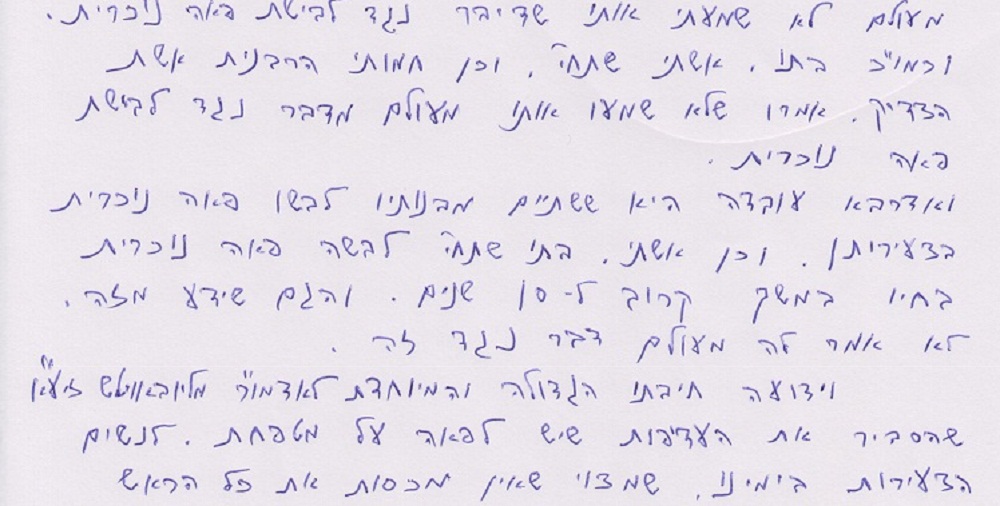 מעולם לא שמעתי אותו שדיבר נגד לבישת פאה נוכרית.
וכמו"כ בתו, אשתי שתחי', וכן חמותי הרבנית אשת
הצדיק, אמרו שלא שמעו אותו מעולם מדבר נגד לבישת
פאה נוכרית.
ואדרבא עובדה היא ששתיים מבנותיו לבשו פאה נוכרית
בצעירותן, וכן אשתי, בתו שתחי' לבשה פאה נוכרית
בחיו במשך קרוב ל-10 שנים. והגם שידע מזה,
לא אמר לה מעולם דבר נגד זה.
וידועה חיבתו הגדולה והמיוחדת לאדמו"ר מליובאוויטש זיע"א
שהסביר את העדיפות שיש לפאה על מטפחת, לנשים
הצעירות בימינו, שמצוי שאין מכסות את כל הראש